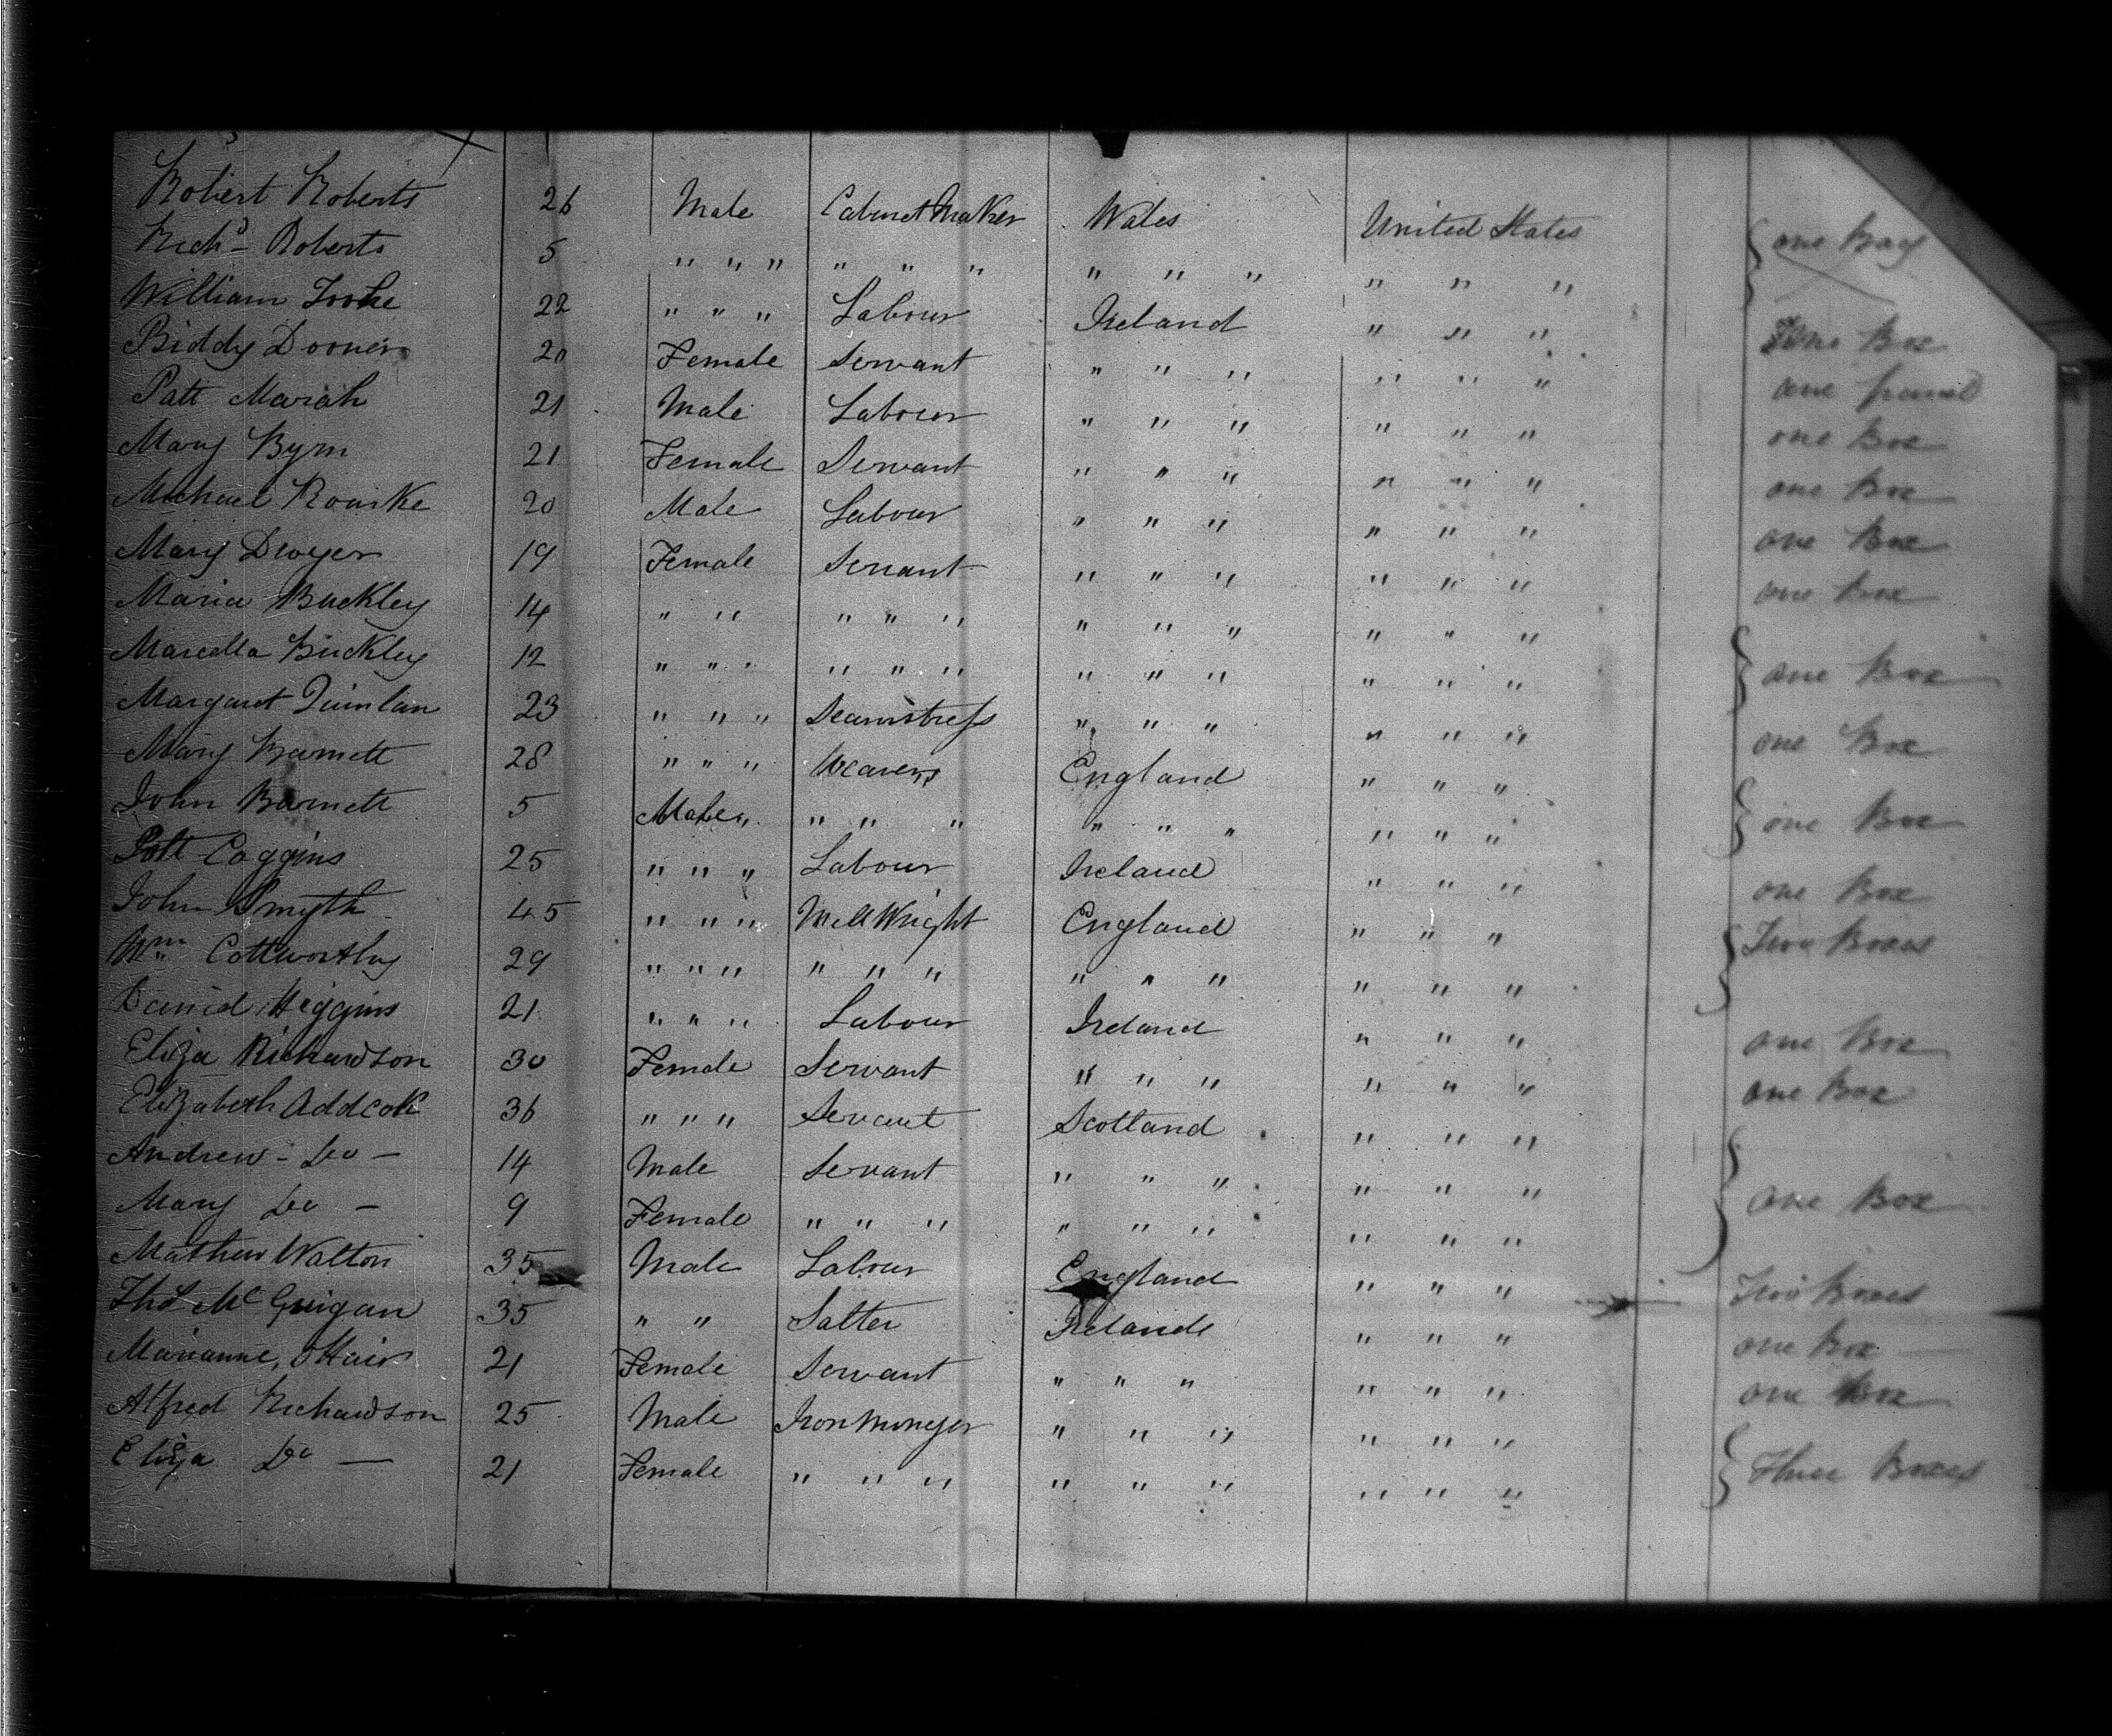 Robert Roberts 26 Male Cabinet Maker Wales United States one Bag
Richd Roberts 5 " " " " " " " " " " " "
William Tooke 22 " " " Labour Ireland " " " One Box
Biddy Dooner 20 Female Servant " " " " " " one parcel
Patt Marah 21 Male Labour " " " " " " one Box
Mary Byrn 21 Female Servant " " " " " " one Box
Michael Rourke 20 Male Labour " " " " " " one Box
Mary Dwyer 19 Female Servant " " " " " " one Box
Maria Buckley 14 " " " " " " " " " " "
Marcella Buckley 12 " " " " " " " " " " " " one Box
Margaret Quinlan 23 " " " Seamstress " " " " " " one Box
Mary Barnett 28 " " " Weavers England " " "
John Barnett 5 Male " " " " " " " " " " one Box
Patt Coggins 25 " " " Labour Ireland " " " one Box
John Smyth 45 " " " Mill Wright England " " " Two Boxes
Wm Cottworthy 29 " " " " " " " " " " " "
David Higgins 21 " " " Labour Ireland " " " one Box
Eliza Richardson 30 Female Servant " " " " " " one Box
Elizabeth Addcok 36 " " " Servant Scotland " " "
Andrew - Do - 14 Male Servant " " " " " "
Mary Do - 9 Female " " " " " " " " " one Box
Mathew Walton 35 Male Labour England " " " Two Boxes
Thos McGuigan 35 " " Salter Ireland " " " one Box
Marianne OHair 21 Female Servant " " " " " " one Box
Alfred Richardson 25 Male Iron Monger " " " " " "
Eliza Do - 21 Female " " " " " " " " " Three Boxes